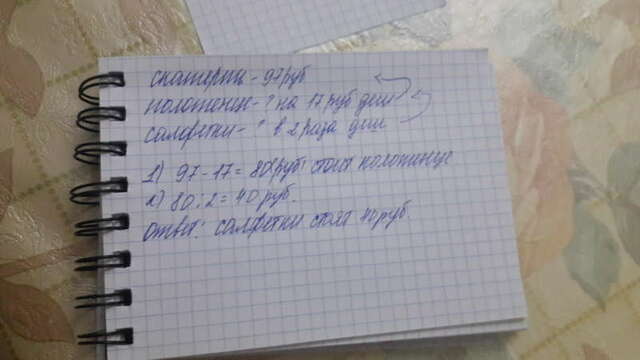 скатерть - 97 руб
полотенце - ? на 17 руб деш
салфетки - ? в 2 раза деш
1) 97 - 17 = 80 (руб) стоит полотенце
2) 80 : 2 = 40 руб.
ответ: салфетки стоят 40 руб.